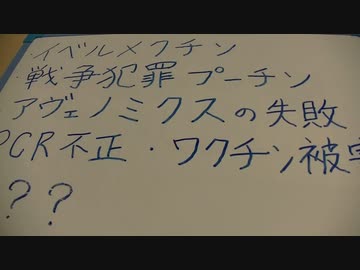 イベルメクチン
戦争犯罪プーチン
アヴェノミクスの失敗
PCR不正・ワクチン被害
？？